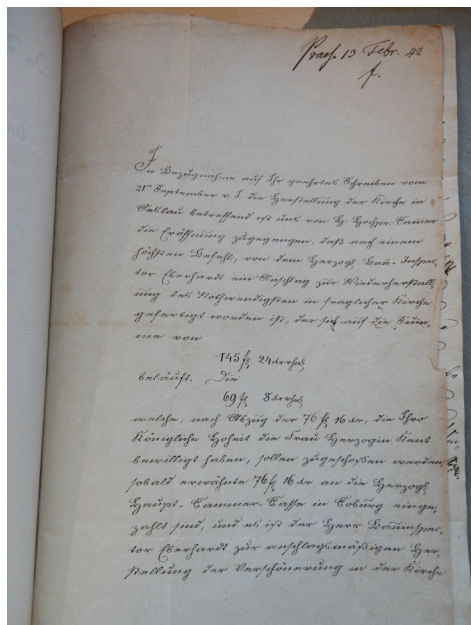 Praes. 13 Febr. 42
In Bezugnahme auf Ihr geehrtes Schreiben vom
21n September v. J. die Herstellung der Kirche in
betreffend ist uns von H. Hochpr. Cammer
die Eröffnung zugegangen, daß nach einem
höchsten Befehl, von dem Herzogl. Bau-Inspec-
tor Eberhardt ein Anschlag zur Wiederherstell-
ung des Nothwendigsten in fraglicher Kirche
gefertigt worden ist, der sich auf die Sum-
me von
145 f 24
beläuft. Die
69 f 8
welche, nach Abzug der 76 f 16 xr, die Ihro
Königliche Hoheit die Frau Herzogin Kent
bewilligt haben, sollen zugeschoßen werden,
sobald erwähnte 76 f 16 xr an die Herzogl.
Haupt-Cammer-Casse in Coburg einge-
zahlt sind, und es ist der Herr Bauinspec-
tor Eberhardt zur anschlagsmäßigen Her-
stellung der Verschönerung in der Kirche